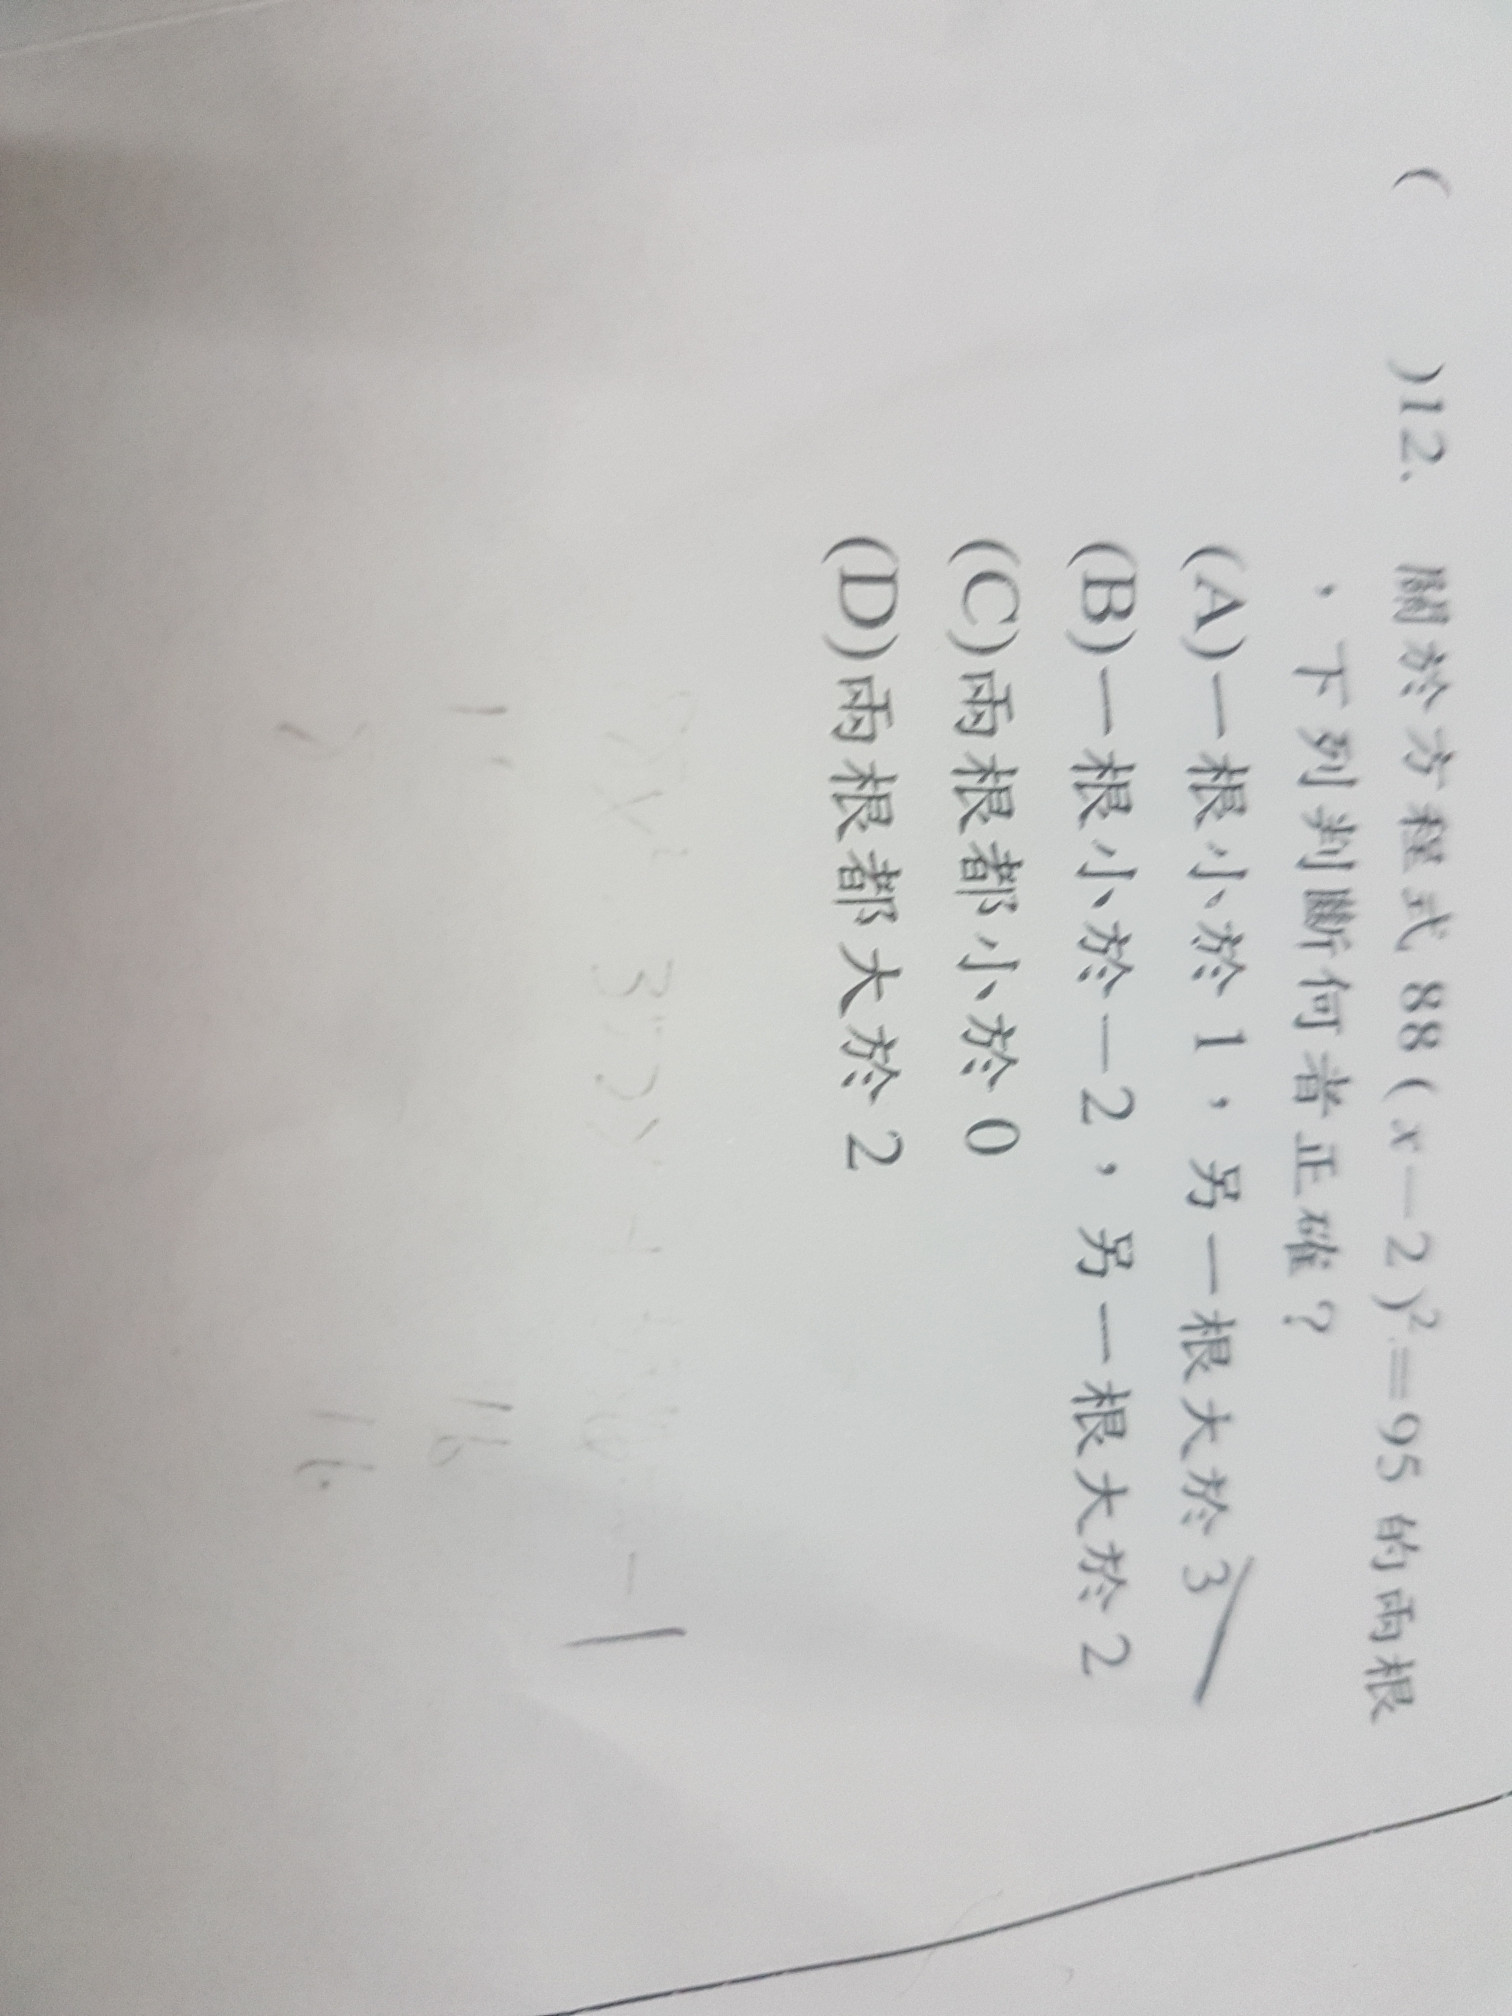 (  )12、關於方程式 88(x－2)²＝95 的兩根
，下列判斷何者正確？
(A)一根小於 1，另一根大於 3
(B)一根小於－2，另一根大於 2
(C)兩根都小於 0
(D)兩根都大於 2